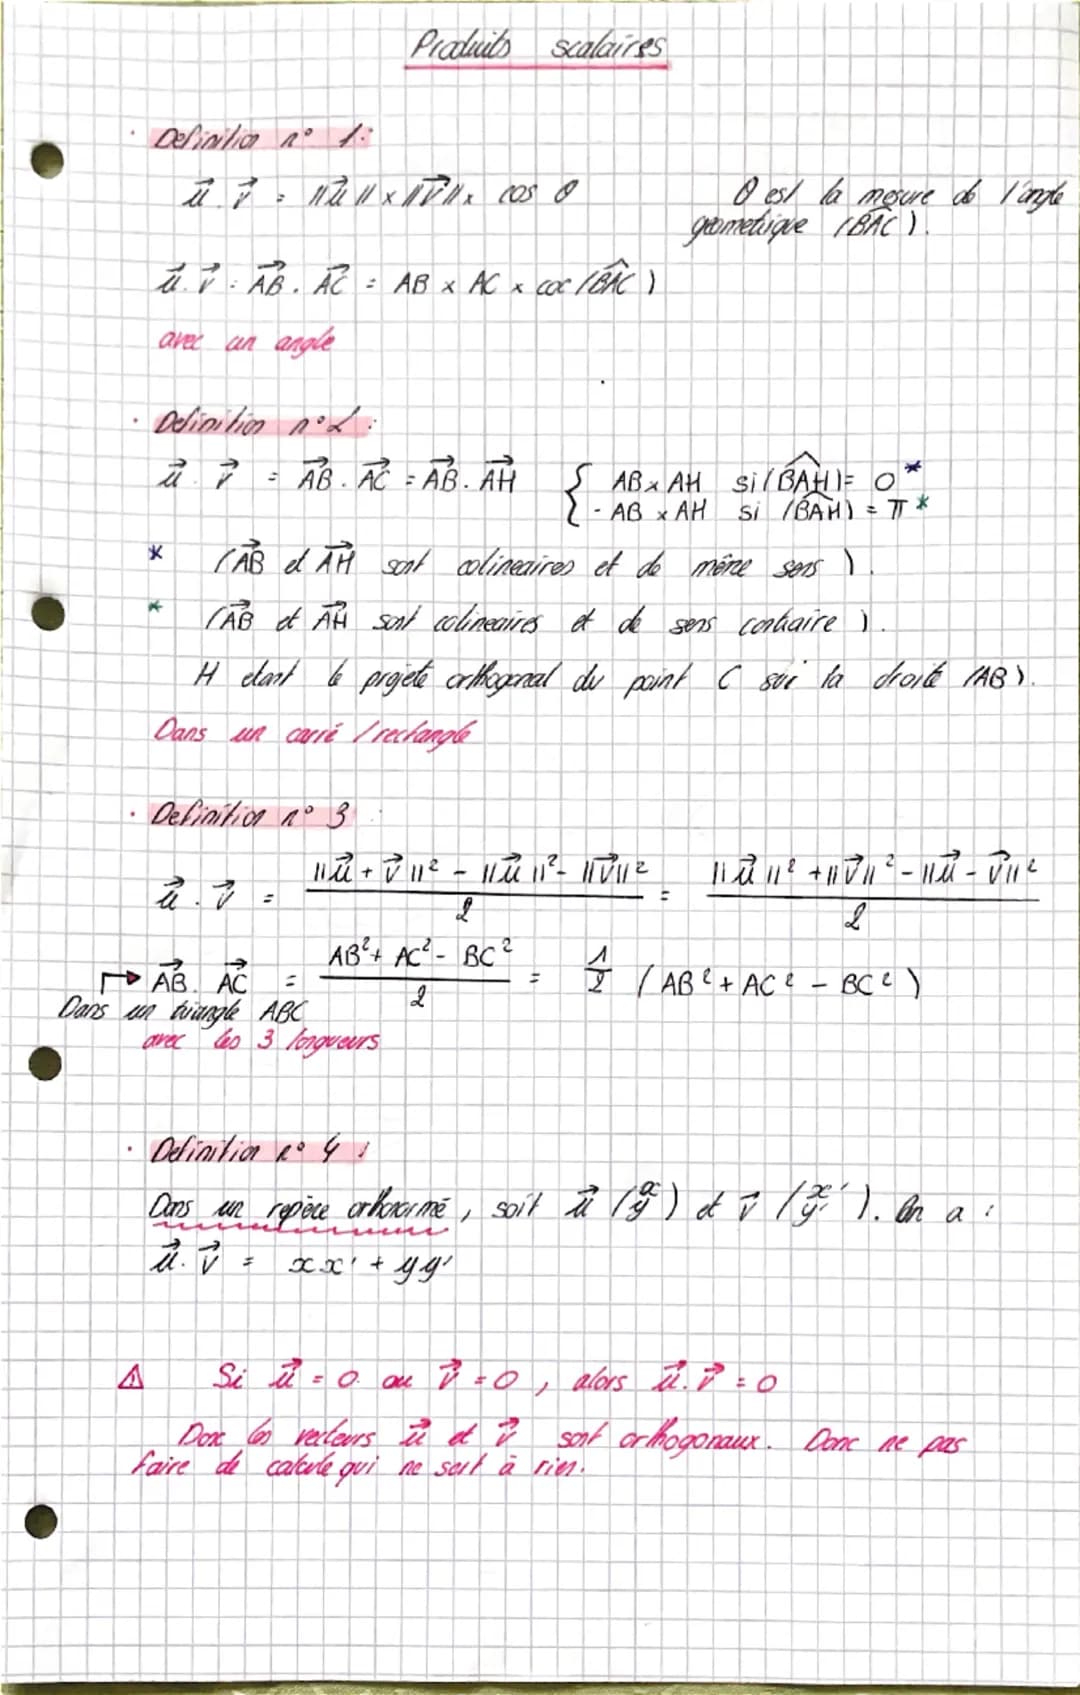 Produits scalaires
· Definition n° 1:
u⃗ . v⃗ = ||u⃗|| x ||v⃗|| x cos θ
θ est la mesure de l'angle
geometrique (BAC).
u⃗. v⃗ : AB⃗ . AC⃗ = AB x AC x coc (BAC)
avec un angle
· Definition n°2 :
u⃗ . v⃗ = AB⃗ . AC⃗ = AB⃗ . AH⃗ { AB x AH si (BAH) = 0 *
- AB x AH si (BAH) = π *
* (AB⃗ et AH⃗ sont colineaires et de même sens ).
* (AB⃗ et AH⃗ sont colineaires et de sens contraire ).
H etant le projeté orthogonal du point C sur la droite (AB).
Dans un carré / rectangle
· Definition n° 3 :
u⃗ . v⃗ = (||u⃗ + v⃗||² - ||u⃗||² - ||v⃗||²) / 2 = (||u⃗||² + ||v⃗||² - ||u⃗ - v⃗||²) / 2
↱ AB⃗ . AC⃗ = (AB² + AC² - BC²) / 2 = 1/2 (AB² + AC² - BC²)
Dans un triangle ABC
avec les 3 longueurs
· Definition n° 4 :
Dans un repère orthonormé, soit u⃗ (x y) et v⃗ (x' y'). On a :
u⃗. v⃗ = xx' + yy'
⚠ Si u⃗ = 0 ou v⃗ = 0, alors u⃗. v⃗ = 0
Donc les vecteurs u⃗ et v⃗ sont orthogonaux. Donc ne pas
faire de calcule qui ne sert à rien.